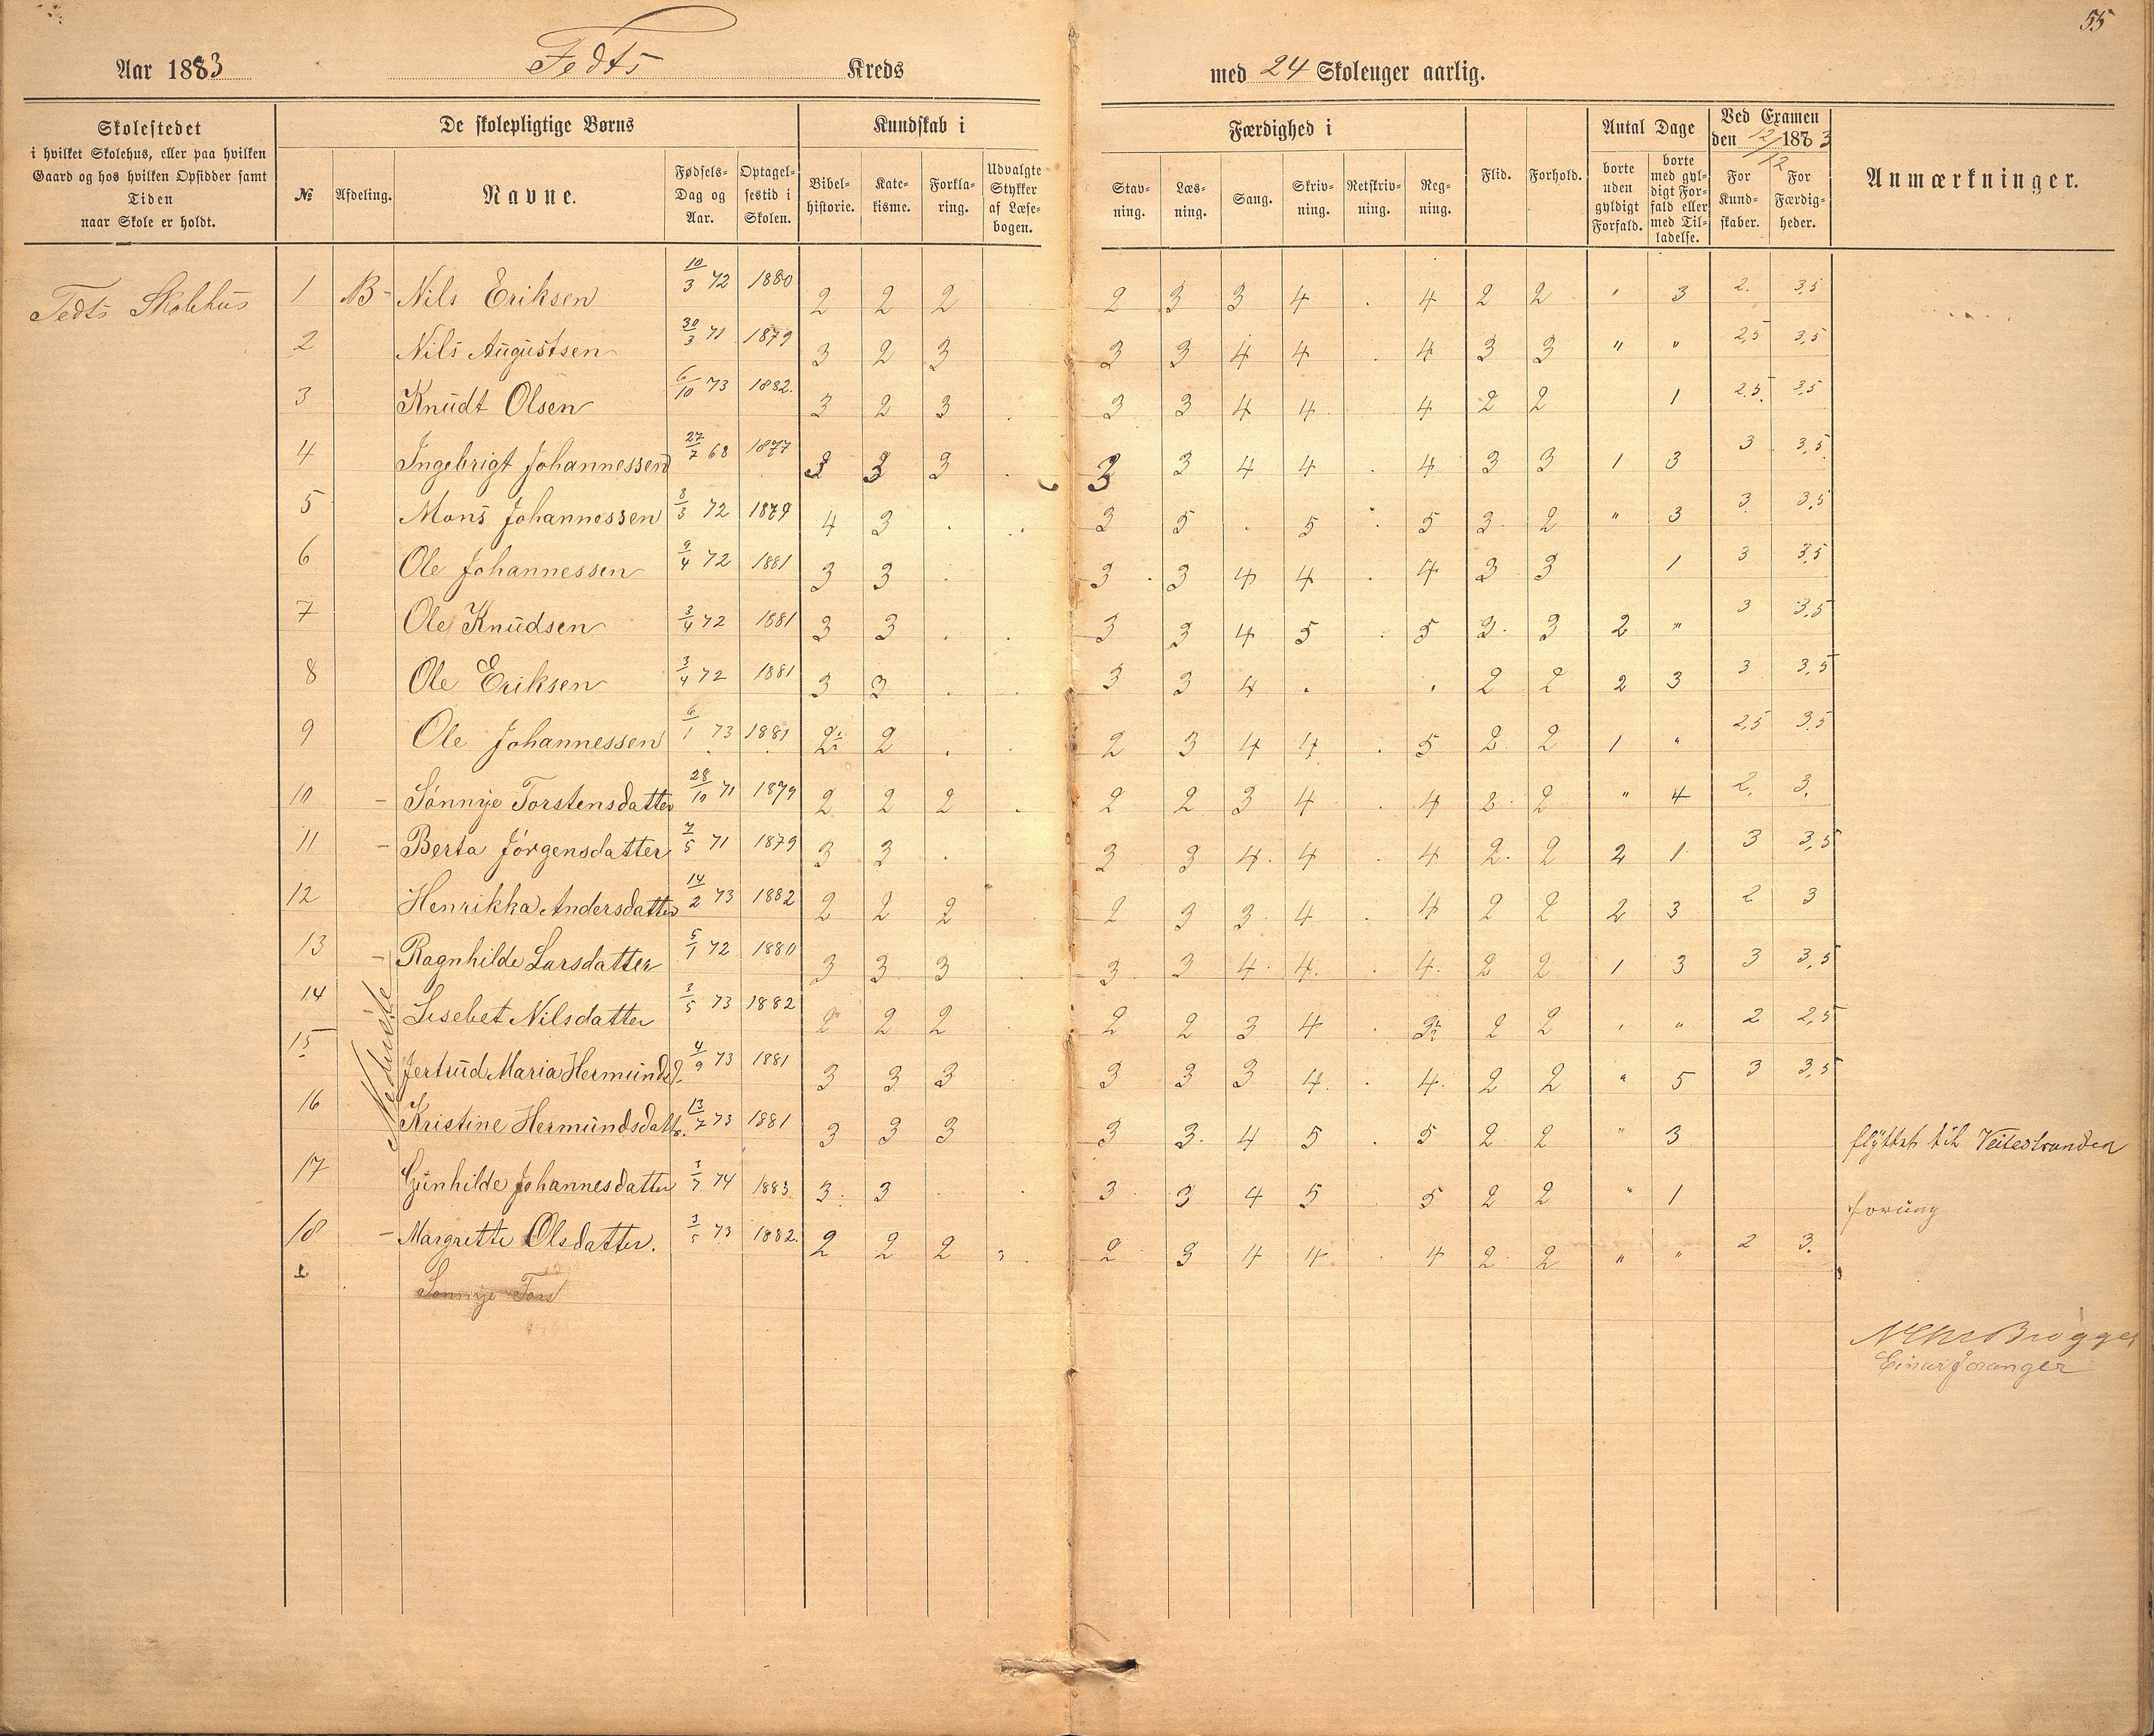 55
Aar 1883 Fedts Kreds med 24 Skoleuger aarlig.
Skolestedet
i hvilket Skolehus, eller paa hvilken
Gaard og hos hvilken Opsidder samt
Tiden
naar Skole er holdt.
De skolepligtige Børns
№ Afdeling. Navne. Fødsels-Dag og Aar. Optagel-sestid i Skolen.
Kundskab i
Bibel-historie. Kate-kisme. Forkla-ring. Udvalgte Stykker af Læse-bogen.
Færdighed i
Stav-ning. Læs-ning. Sang. Skriv-ning. Retskriv-ning. Reg-ning.
Flid. Forhold.
Antal Dage
borte uden gyldigt Forfald. borte med gyl-digt For-fald eller med Til-ladelse.
Ved Examen
den 12/12 1883
For Kund-skaber. For Færdig-heder.
Anmærkninger.
Fedts Skolehus
1 B - Nils Eriksen 10/3 72 1880 2 2 2 2 3 3 4 . 4 2 2 " 3 2. 3,5
2 Nils Augustsen 30/3 71 1879 3 2 3 3 3 4 4 . 4 3 3 " " 2,5 3,5
3 Knudt Olsen 6/10 73 1882. 3 2 3 . 3 3 4 4 4 2 2 1 2.5. 3,5
4 Ingebrigt Johannessen 27/7 68 1877 3 3 3 . 3 3 4 4 . 4 3 3 1 3 3. 3,5
5 Mons Johannessen 8/3 72 1879 4 3 . . 3 5 . 5 . 5 3. 2 " 3 3. 3,5
6 Ole Johannessen 9/4 72 1881 3 3 . 3 3 4 4 . 4 3 3 1 3 3,5
7 Ole Knudsen 3/4 72 1881 3 3 . . 3 3 4 5 . 5 3. 3 2 " 3 3,5
8 Ole Eriksen 3/4 72 1881 3 3 . . 3 3 4 . . 2 2 2 3 3 3,5
9 Ole Johannessen 6/1 73 1881 2 2 . . 2 3 4 4 . 5 2. 2 1 " 2,5 3,5
10 - Sønnye Torstensdatter 28/10 71 1879 2 2 2 . 2 2 3 4 . 4 2. 2 " 4 2. 3.
11 - Berta Jørgensdatter 7/5 71 1879 3 3 . 3 3 4. 4 . 4 2. 2 2 1 3 3,5
12 Henrikka Andersdatter 14/2 73 1882 2 2 2 . 2 3 3. 4 . 4 2 2 2 3 2 3
13 - Ragnhilde Larsdatter 5/1 72 1880 3 3 3 . 3 3 4. 4. . 4. 2 2 1 3 3 3,5
14 Lisebet Nilsdatter 3/5 73 1882 2 2 2 2 2 3 4 . 3 2 2 " " 2 2,5
15 Jertrud Maria Hermundsd. 4/9 73 1881 3 3 3 . 3 3 3 4. . 4. 2 2 " 5 3 3,5
16 Kristine Hermundsdatr. 13/7 73 1881 3 3 3 3 3. 4 5 . 5 2 2 " 3 flyttet til Veitestranden
17 Gunhilde Johannesdatter 3/7 74 1883 3. 3 . . 3 3 4 5 5 2 2 " 1 forung
18 - Margrette Olsdatter. 3/5 73 1882. 2 2 2 2 3 4 4 . 4 2. 2 " " 2 3.
Nederste
Sønnye Tors
Brügger
Einar Joranger